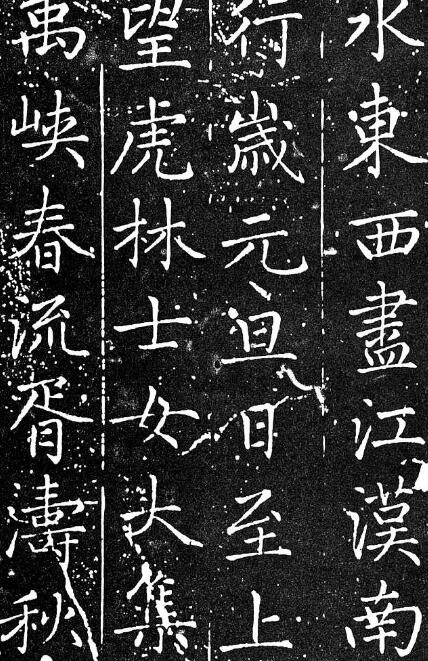 水東西盡江漢南
行歲元亘日至上
望虎林士女大集
萬峽春流胥濤秋